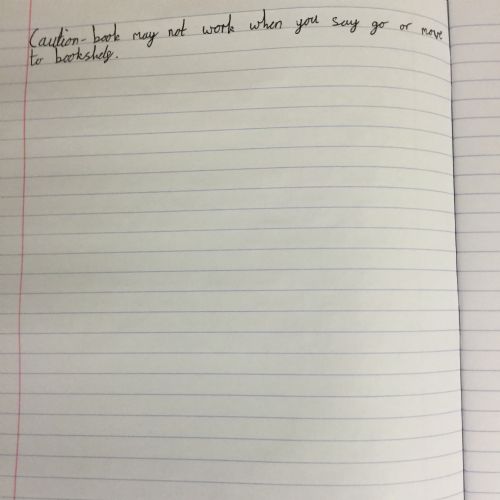 Caution- book may not work when you say go or move
to bookshelf.